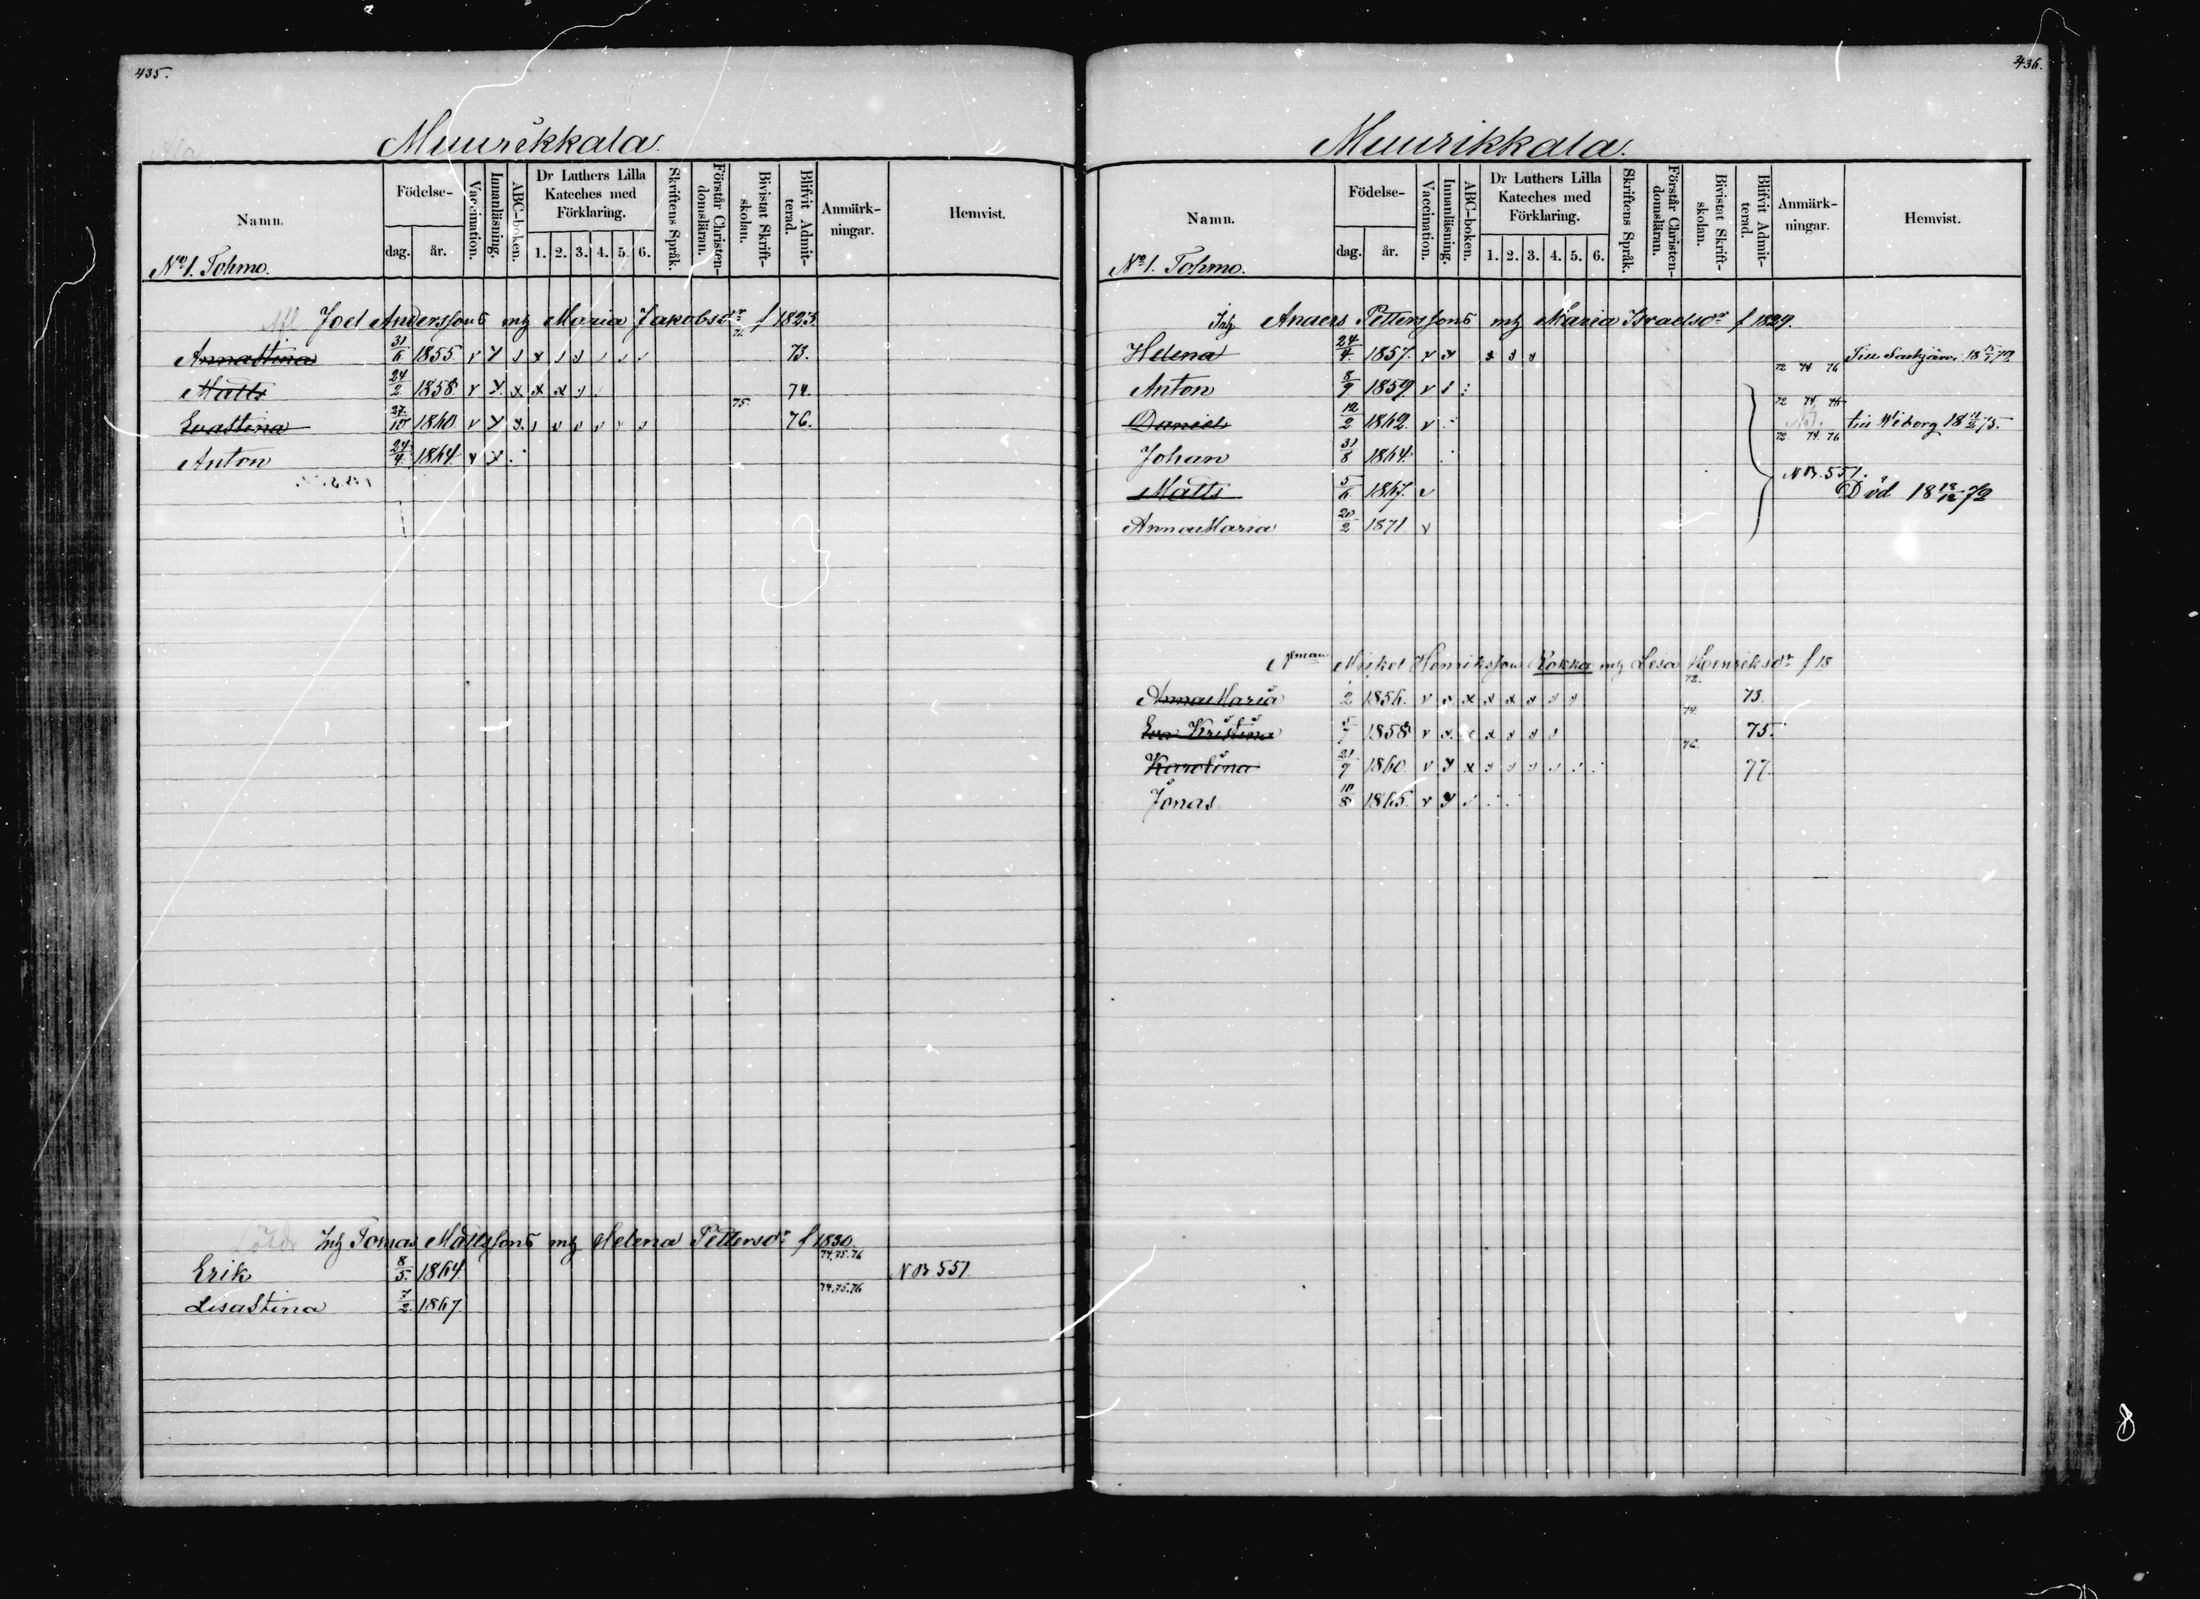 435.
Muurikkala.
Namn.
Födelse-
dag.
år.
Vaccination.
Innanläsning.
ABC-boken.
Dr Luthers Lilla
Kateches med
Förklaring.
1. 2. 3. 4. 5. 6.
Skriftens Språk.
Förstår Christen-
domsläran.
Bivistat Skrift-
skolan.
Blifvit Admit-
terad.
Anmärk-
ningar.
Hemvist.
No 1. Tohmo.
Joel Anderssons mh Maria Jakobsdr f 1823.
Annastina 31/6 1855 73.
Matts 24/2 1858 74.
75.
Evastina 27/10 1860 76.
Anton 24/4 1864
Inh Tomas Mattssons mh Helena Pettersdr f 1830
74.75.76
Erik 8/5 1864 NB 551
74.75.76
Lisastina 7/2 1867
436.
Muurikkala.
Namn.
Födelse-
dag.
år.
Vaccination.
Innanläsning.
ABC-boken.
Dr Luthers Lilla
Kateches med
Förklaring.
1. 2. 3. 4. 5. 6.
Skriftens Språk.
Förstår Christen-
domsläran.
Bivistat Skrift-
skolan.
Blifvit Admit-
terad.
Anmärk-
ningar.
Hemvist.
No 1. Tohmo.
Inh Anders Petterssons mh Maria Israelsdr f 1829.
Helena 24/4 1857. Till
72 74 76
Anton 8/9 1859
72 74 76
Daniel 12/2 1862. till Wiborg 18 75.
72 74 76
Johan 31/8 1864
NB. 551.
Matts 5/6 1867. Död 18 18/12 72
AnnaMaria 20/2 1871
Mikel Henriksson Kokka mh Lisa Henriksdr f 18
72.
AnnaMaria 1/2 1856. 73.
74.
Eva Kristina 5/7 1858 75.
76.
Karolina 21/9 1860 77.
Jonas 10/8 1865.
8